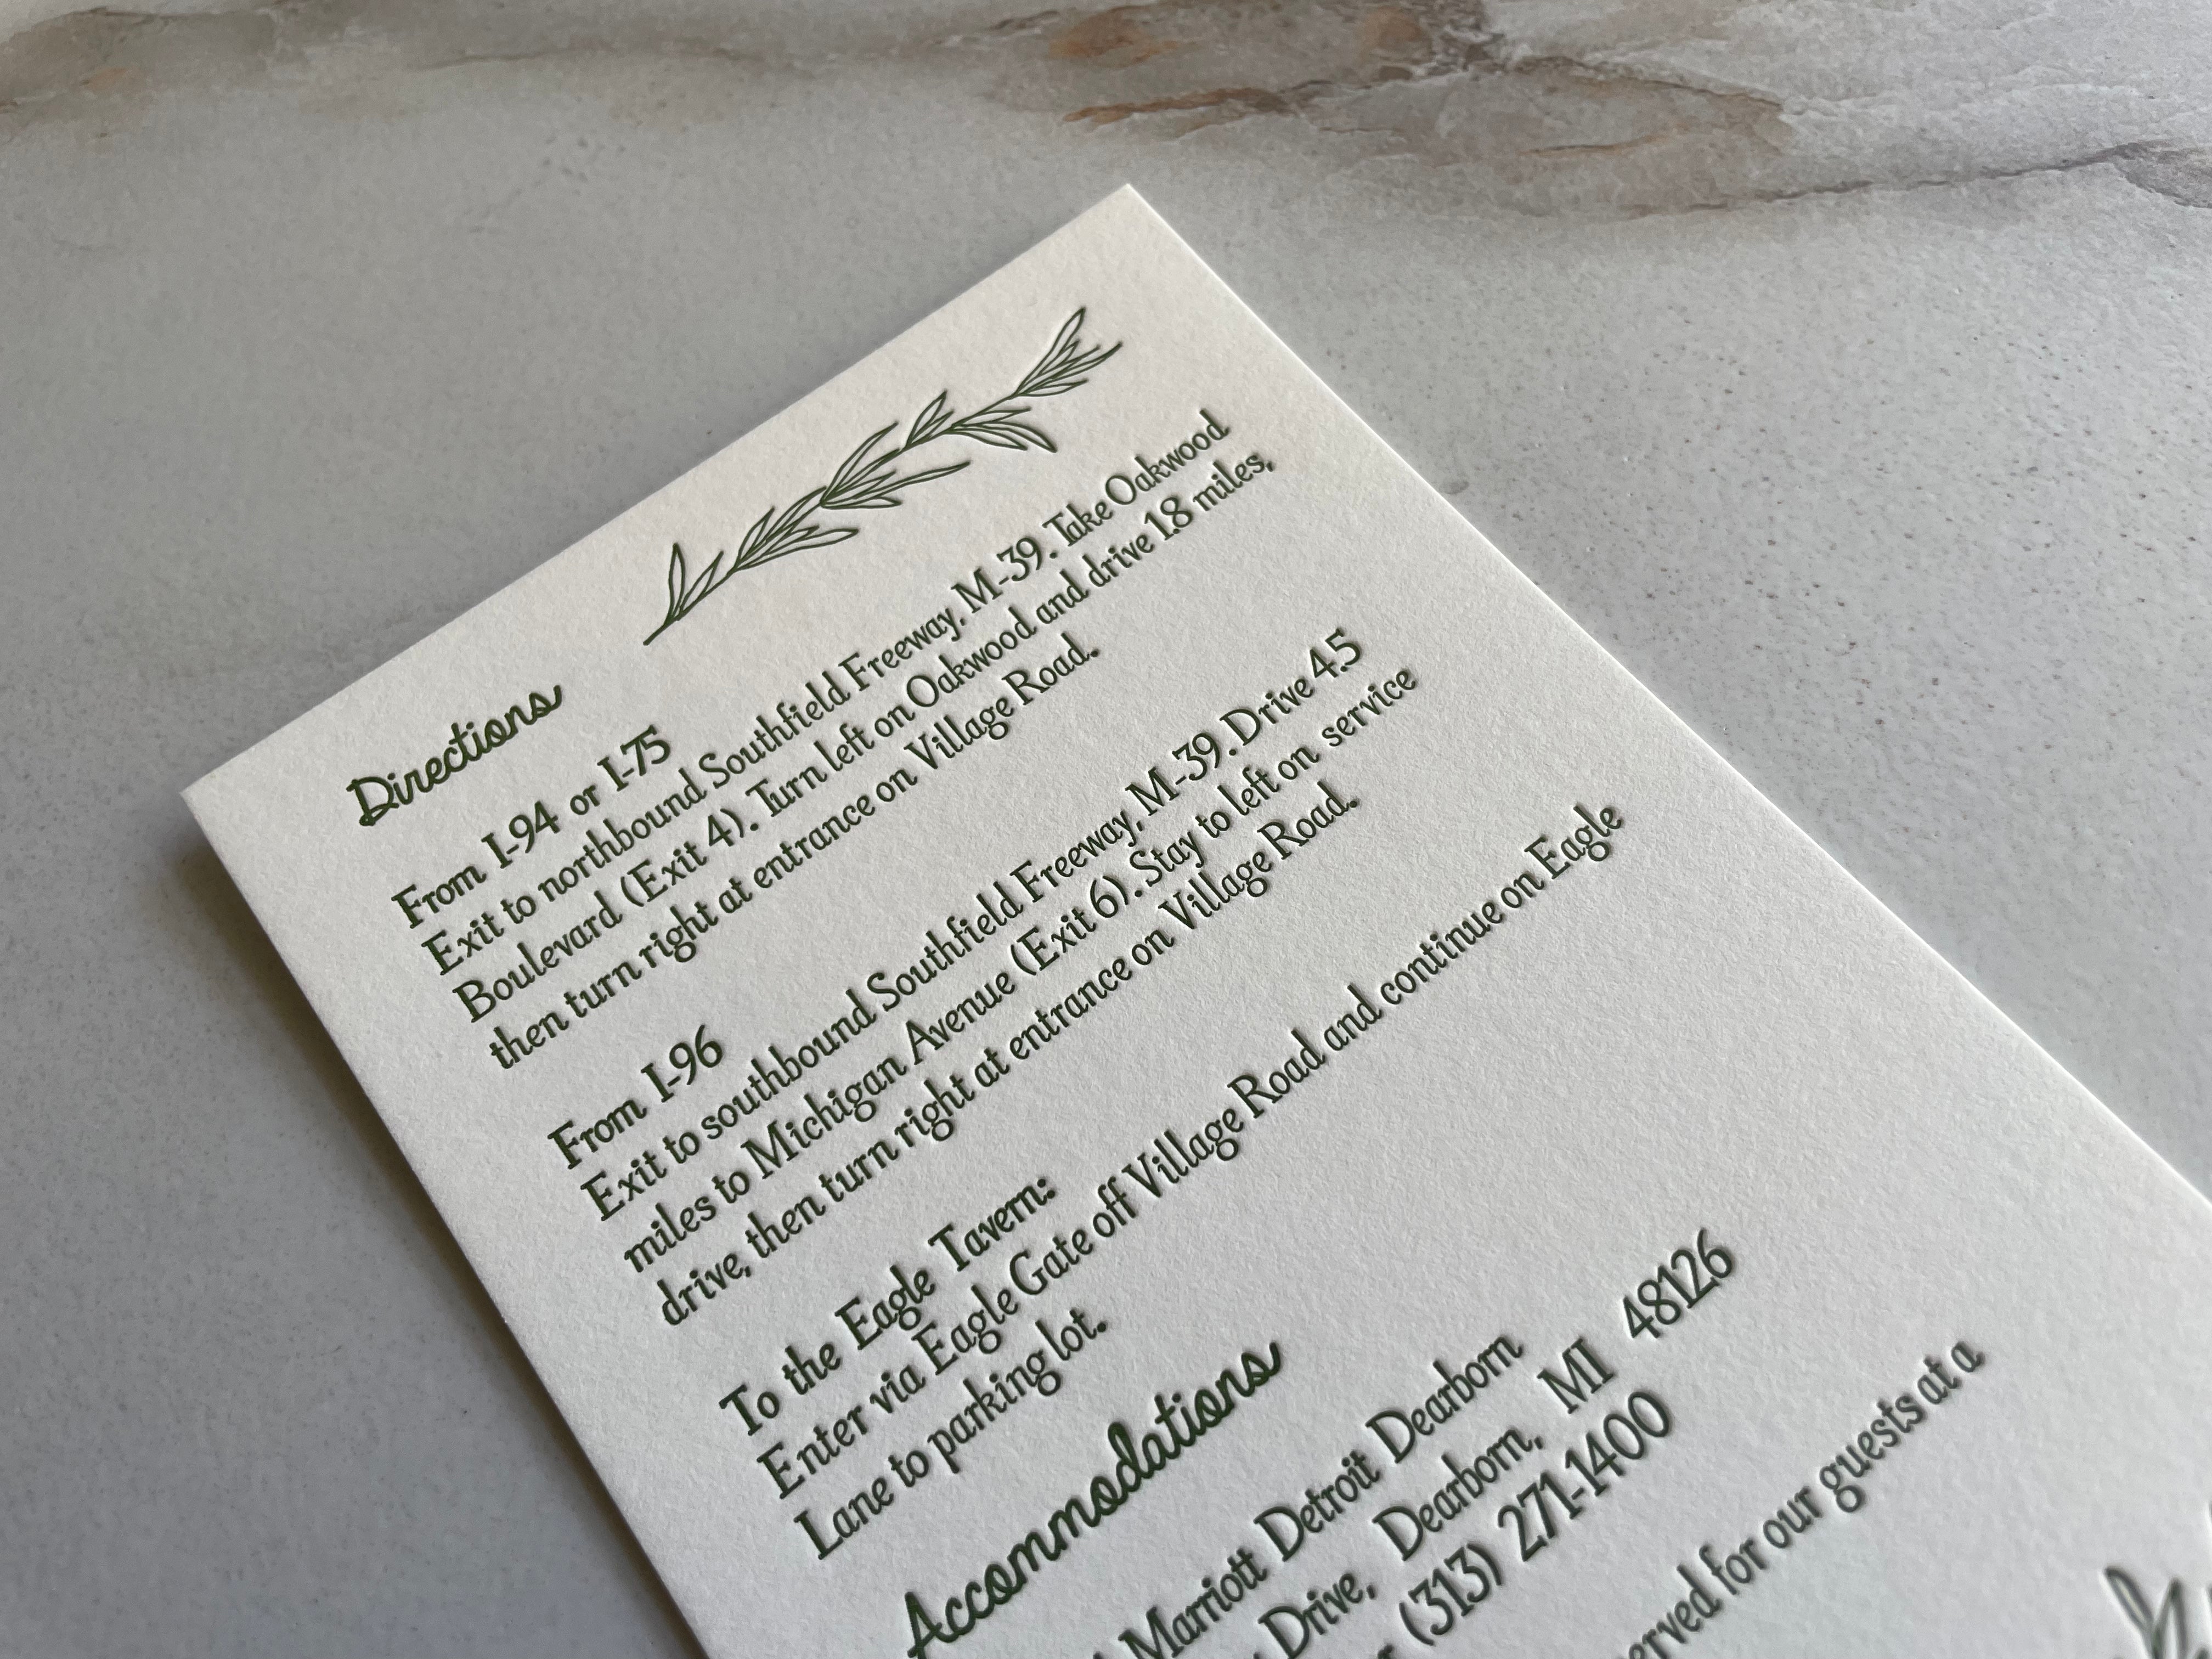 Directions
From I-94 or I-75
Exit to northbound Southfield Freeway, M-39. Take Oakwood
Boulevard (Exit 4). Turn left on Oakwood and drive 1.8 miles,
then turn right at entrance on Village Road.
From I-96
Exit to southbound Southfield Freeway, M-39. Drive 4.5
miles to Michigan Avenue (Exit 6). Stay to left on service
drive, then turn right at entrance on Village Road.
To the Eagle Tavern:
Enter via Eagle Gate off Village Road and continue on Eagle
Lane to parking lot.
Accommodations
Marriott Detroit Dearborn
Drive, Dearborn, MI 48126
(313) 271-1400
for our guests at a